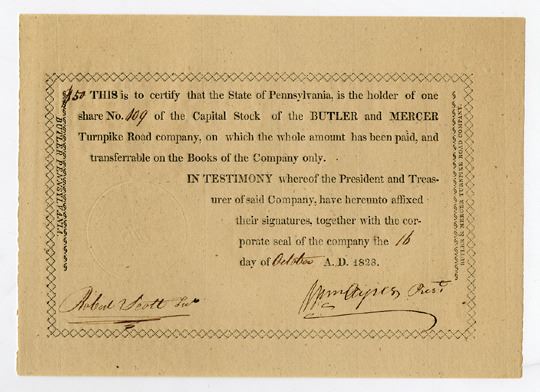 $50 THIS is to certify that the State of Pennsylvania, is the holder of one
share No. 109 of the Capital Stock of the BUTLER and MERCER
Turnpike Road company, on which the whole amount has been paid, and
transferrable on the Books of the Company only.
IN TESTIMONY whereof the President and Treas-
urer of said Company, have hereunto affixed
their signatures, together with the cor-
porate seal of the company the 16
day of October A. D. 1828.
Robert Scott
Wm Ayres Prest
BUTLER PENNSYLVANIA.
BUTLER & MERCER TURNPIKE ROAD COMPANY.